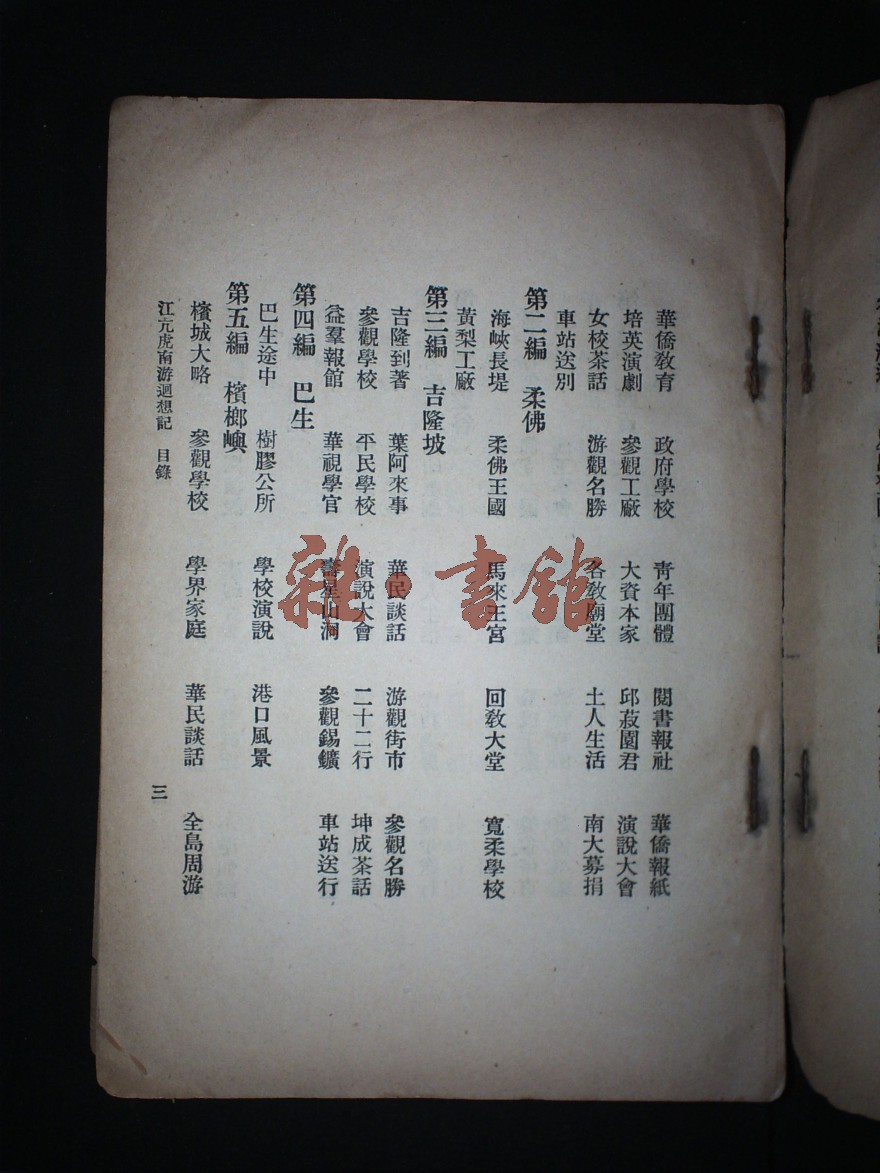 華僑教育 政府學校 青年團體 閱書報社 華僑報紙
培英演劇 參觀工廠 大資本家 邱菽園君 演說大會
女校茶話 游觀名勝 各教廟堂 土人生活 南大募捐
車站送別
第二編 柔佛
海峽長堤 柔佛王國 馬來王宮 回教大堂 寬柔學校
黃梨工廠
第三編 吉隆坡
吉隆到著 葉阿來事 華民談話 游觀街市 參觀名勝
參觀學校 平民學校 演說大會 二十二行 坤成茶話
益羣報館 華視學官 壽星山洞 參觀錫鑛 車站送行
第四編 巴生
巴生途中 樹膠公所 學校演說 港口風景
第五編 檳榔嶼
檳城大略 參觀學校 學界家庭 華民談話 全島周游
江亢虎南游迴想記 目錄
三
雜·書館